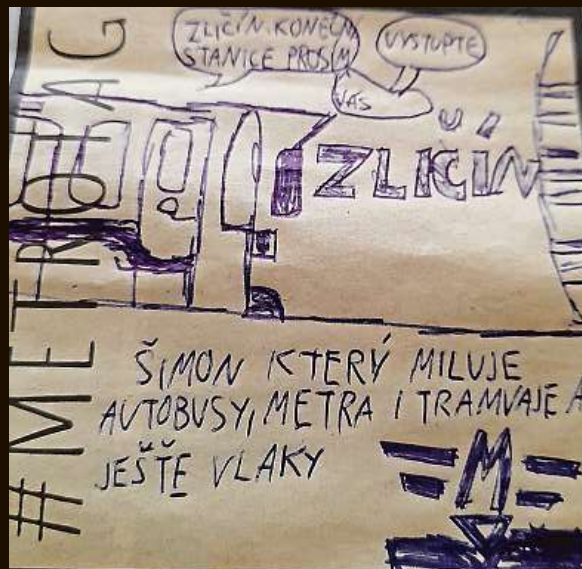 #METROTAG
ZLIČÍN KONEČN
STANICE PROSÍM
VÁS
VYSTUPTE
ZLIČÍN
ŠIMON KTERÝ MILUJE
AUTOBUSY, METRA I TRAMVAJE A
JEŠŤE VLAKY
M